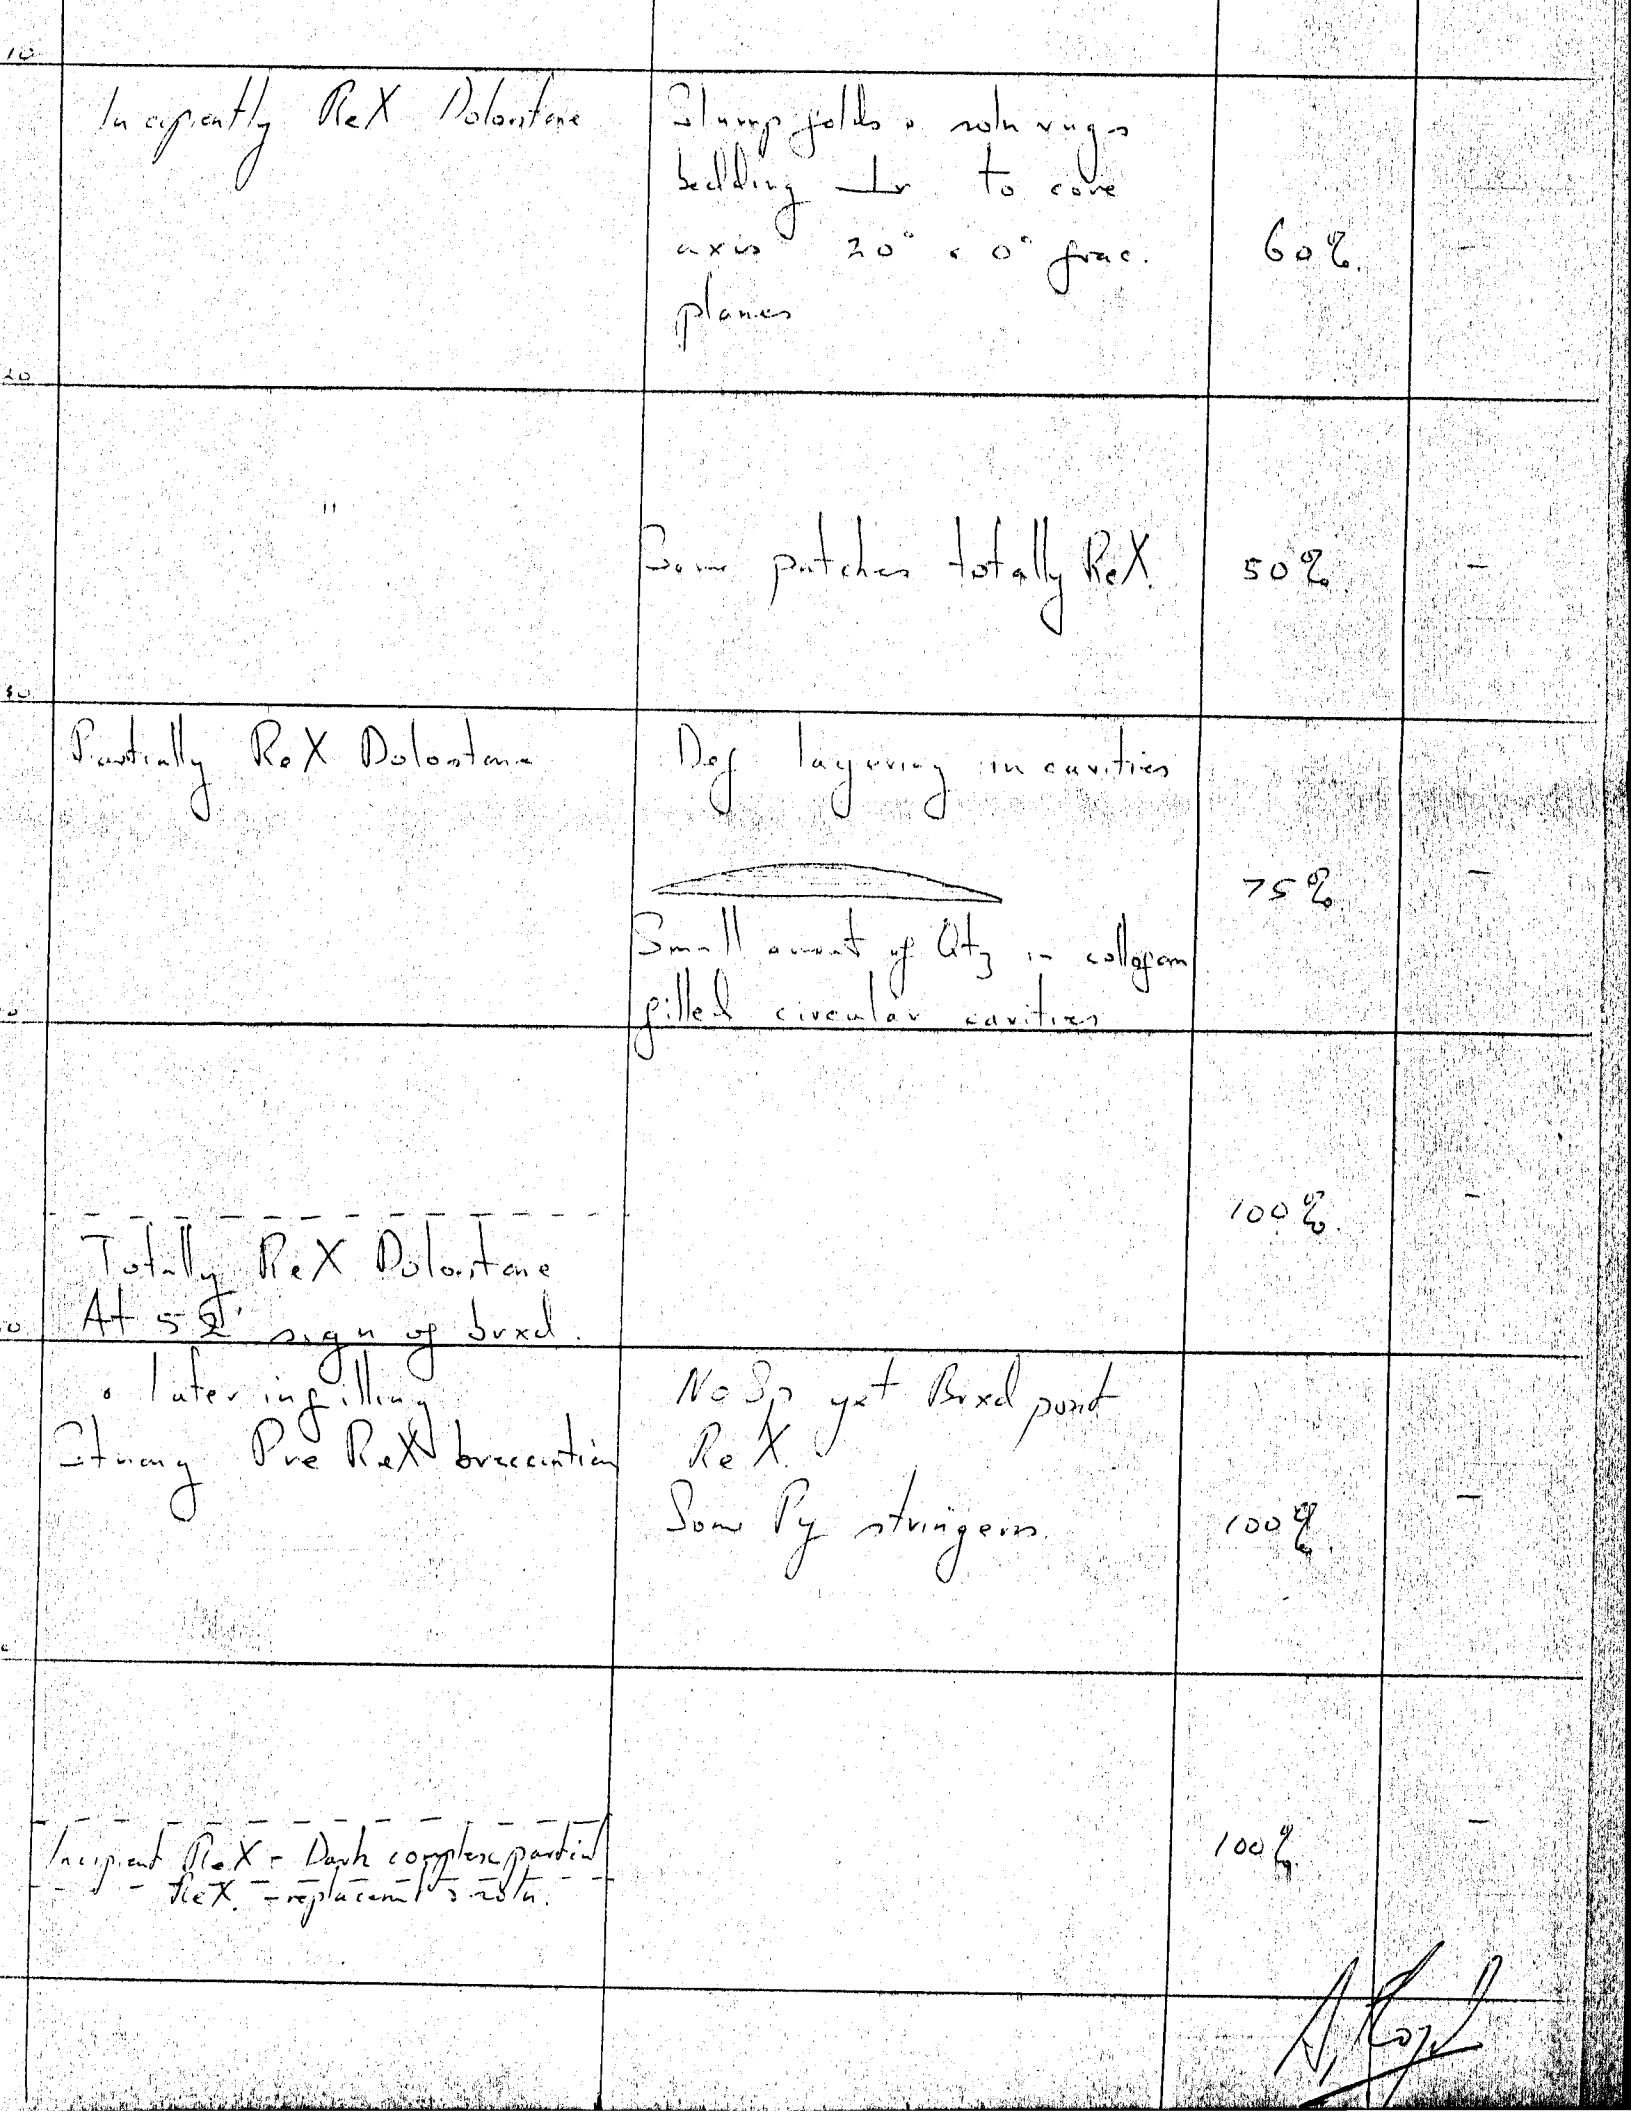 10
Incipiently ReX Dolostone
Slump folds & soln vugs
bedding ⊥r to core
axis 20° & 0° frac.
planes
60%.
-
20
"
Some patches totally ReX.
50%
-
30
Partially ReX Dolostone
Def layering in cavities
75%
-
Small amont of Qtz in collofom
filled circular cavities
100%.
-
Totally ReX Dolostone
At 52' sign of brxd.
& later infilling
Strong Pre ReX brecciation
No Sp yet Brxd post
ReX.
Some Py stringers.
100%.
-
100%.
-
Incipient ReX - Dark complex partial
ReX. - replacement & soln.